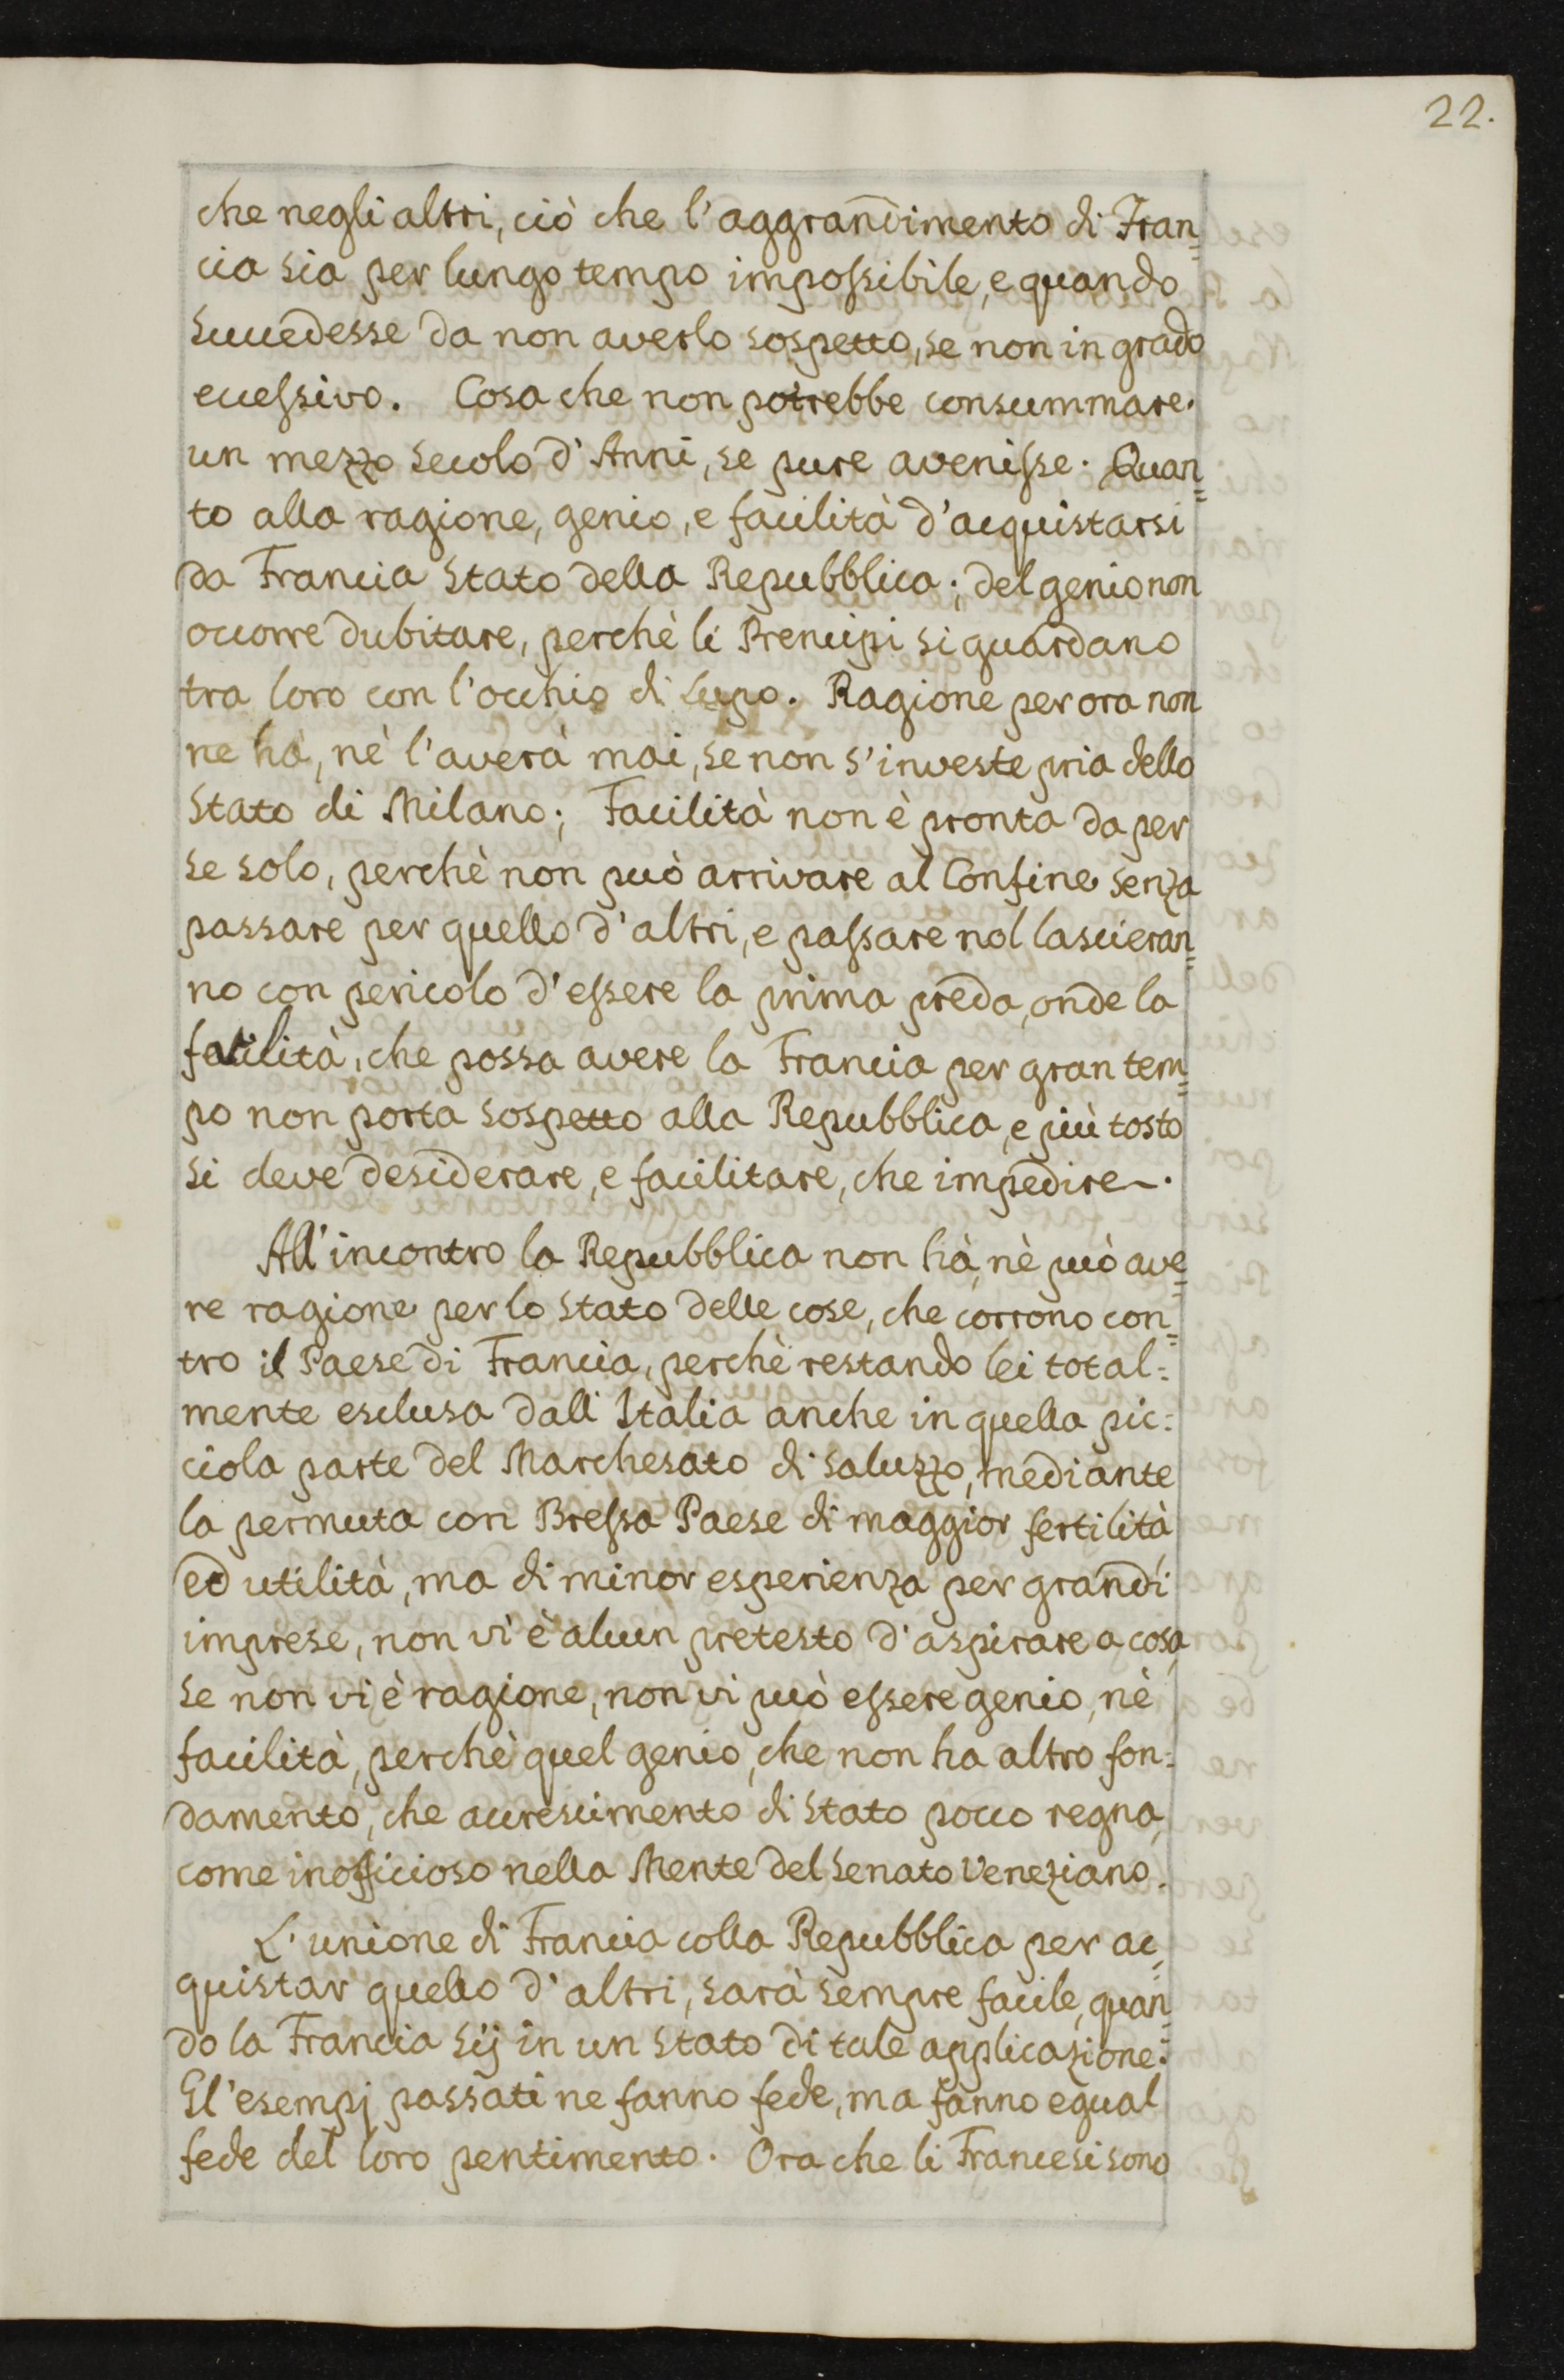 22.
che negli altri, ciò che l'aggrandimento di Fran=
cia sia per lungo tempo impossibile, e quando
succedesse da non averlo sospetto, se non in grado
eccessivo. Cosa che non potrebbe consummare
un mezzo secolo d'Anni, se pure avenisse. Quan=
to alla ragione, genio, e facilità d'acquistarsi
da Francia stato della Repubblica; del genio non
occorre dubitare, perchè li Prencipi si guardano
tra loro con l'occhio di Lupo. Ragione per ora non
ne hà, nè l'averà mai, se non s'investe pria dello
Stato di Milano; Facilità non è pronta da per
se solo, perchè non può arrivare al Confine senza
passare per quello d'altri, e passare nol lascieran=
no con pericolo d'essere la prima preda, onde la
facilità, che possa avere la Francia per gran tem=
po non porta sospetto alla Repubblica, e più tosto
si deve desiderare, e facilitare, che impedire.
All'incontro la Repubblica non hà, nè può ave=
re ragione per lo stato delle cose, che corrono con=
tro il Paese di Francia, perchè restando lei total=
mente esclusa dall'Italia anche in quella pic=
ciola parte del Marchesato di Saluzzo, mediante
la permuta con Bressa Paese di maggior fertilità
ed utilità, ma di minor esperienza per grandi
imprese, non vi è alcun pretesto d'aspirare a cosa,
se non vi è ragione, non vi può essere genio, nè
facilità, perchè quel genio, che non ha altro fon=
damento, che accrescimento di stato pocco regna,
come inofficioso nella Mente del Senato Veneziano.
L'unione di Francia colla Repubblica per ac=
quistar quello d'altri, sarà sempre facile, quan=
do la Francia sij in un stato di tale applicazione.
Gl'esempj passati ne fanno fede, ma fanno egual
fede del loro pentimento. Ora che li Francesi sono